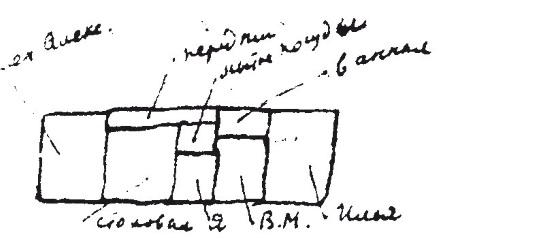 Алекс.
передняя
мытье посуды
ванная
столовая Я В.М. Илья